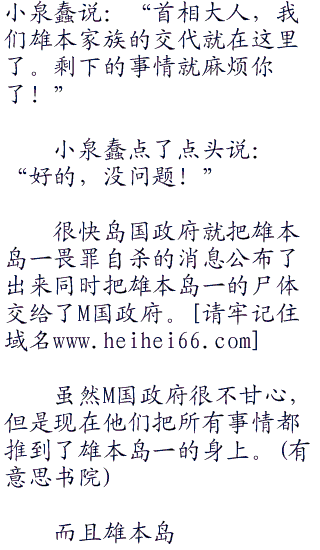 小泉蠢说：“首相大人，我
们雄本家族的交代就在这里
了。剩下的事情就麻烦你
了！”
小泉蠢点了点头说：
“好的，没问题！”
很快岛国政府就把雄本
岛一畏罪自杀的消息公布了
出来同时把雄本岛一的尸体
交给了M国政府。[请牢记住
域名www.heihei66.com]
虽然M国政府很不甘心，
但是现在他们把所有事情都
推到了雄本岛一的身上。(有
意思书院)
而且雄本岛